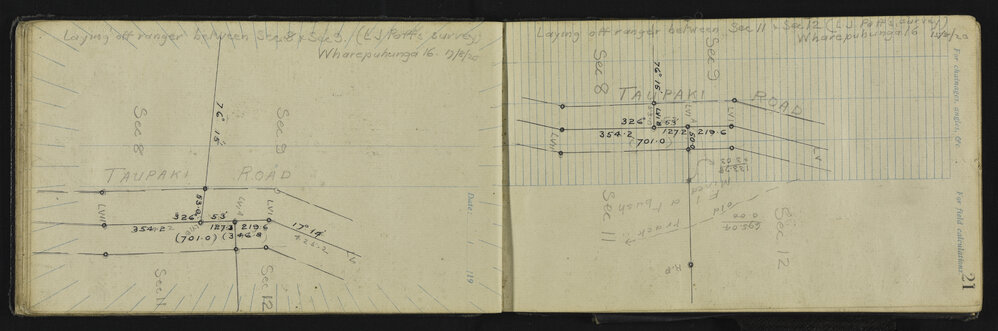 Laying off ranger between Sec 8 & Sec 9 (L J Potts survey)
Wharepuhunga 16 17/8/20
76° 15'
Sec 8
Sec 9
TAUPAKI ROAD
53.0
LVII
326° 53'
LVI
354.2 127.3 219.6
(701.0) (346.8)
17° 14'
426.2
LV
Sec 11
Sec 12
Date: 119
Laying off ranger between Sec 11 & Sec 12 (L J Potts survey)
Wharepuhunga 16 18/8/20
Sec 8
Sec 9
76° 15'
TAUPAKI ROAD
LVI
326° 53'
LVII
354.2 127.2 219.6
(701.0)
50.0
LV
Mixed F
old
a bush
track →
Sec 11
Sec 12
695.04
0.00
R.P.
For chainages, angles, &c.
For field calculations.
21